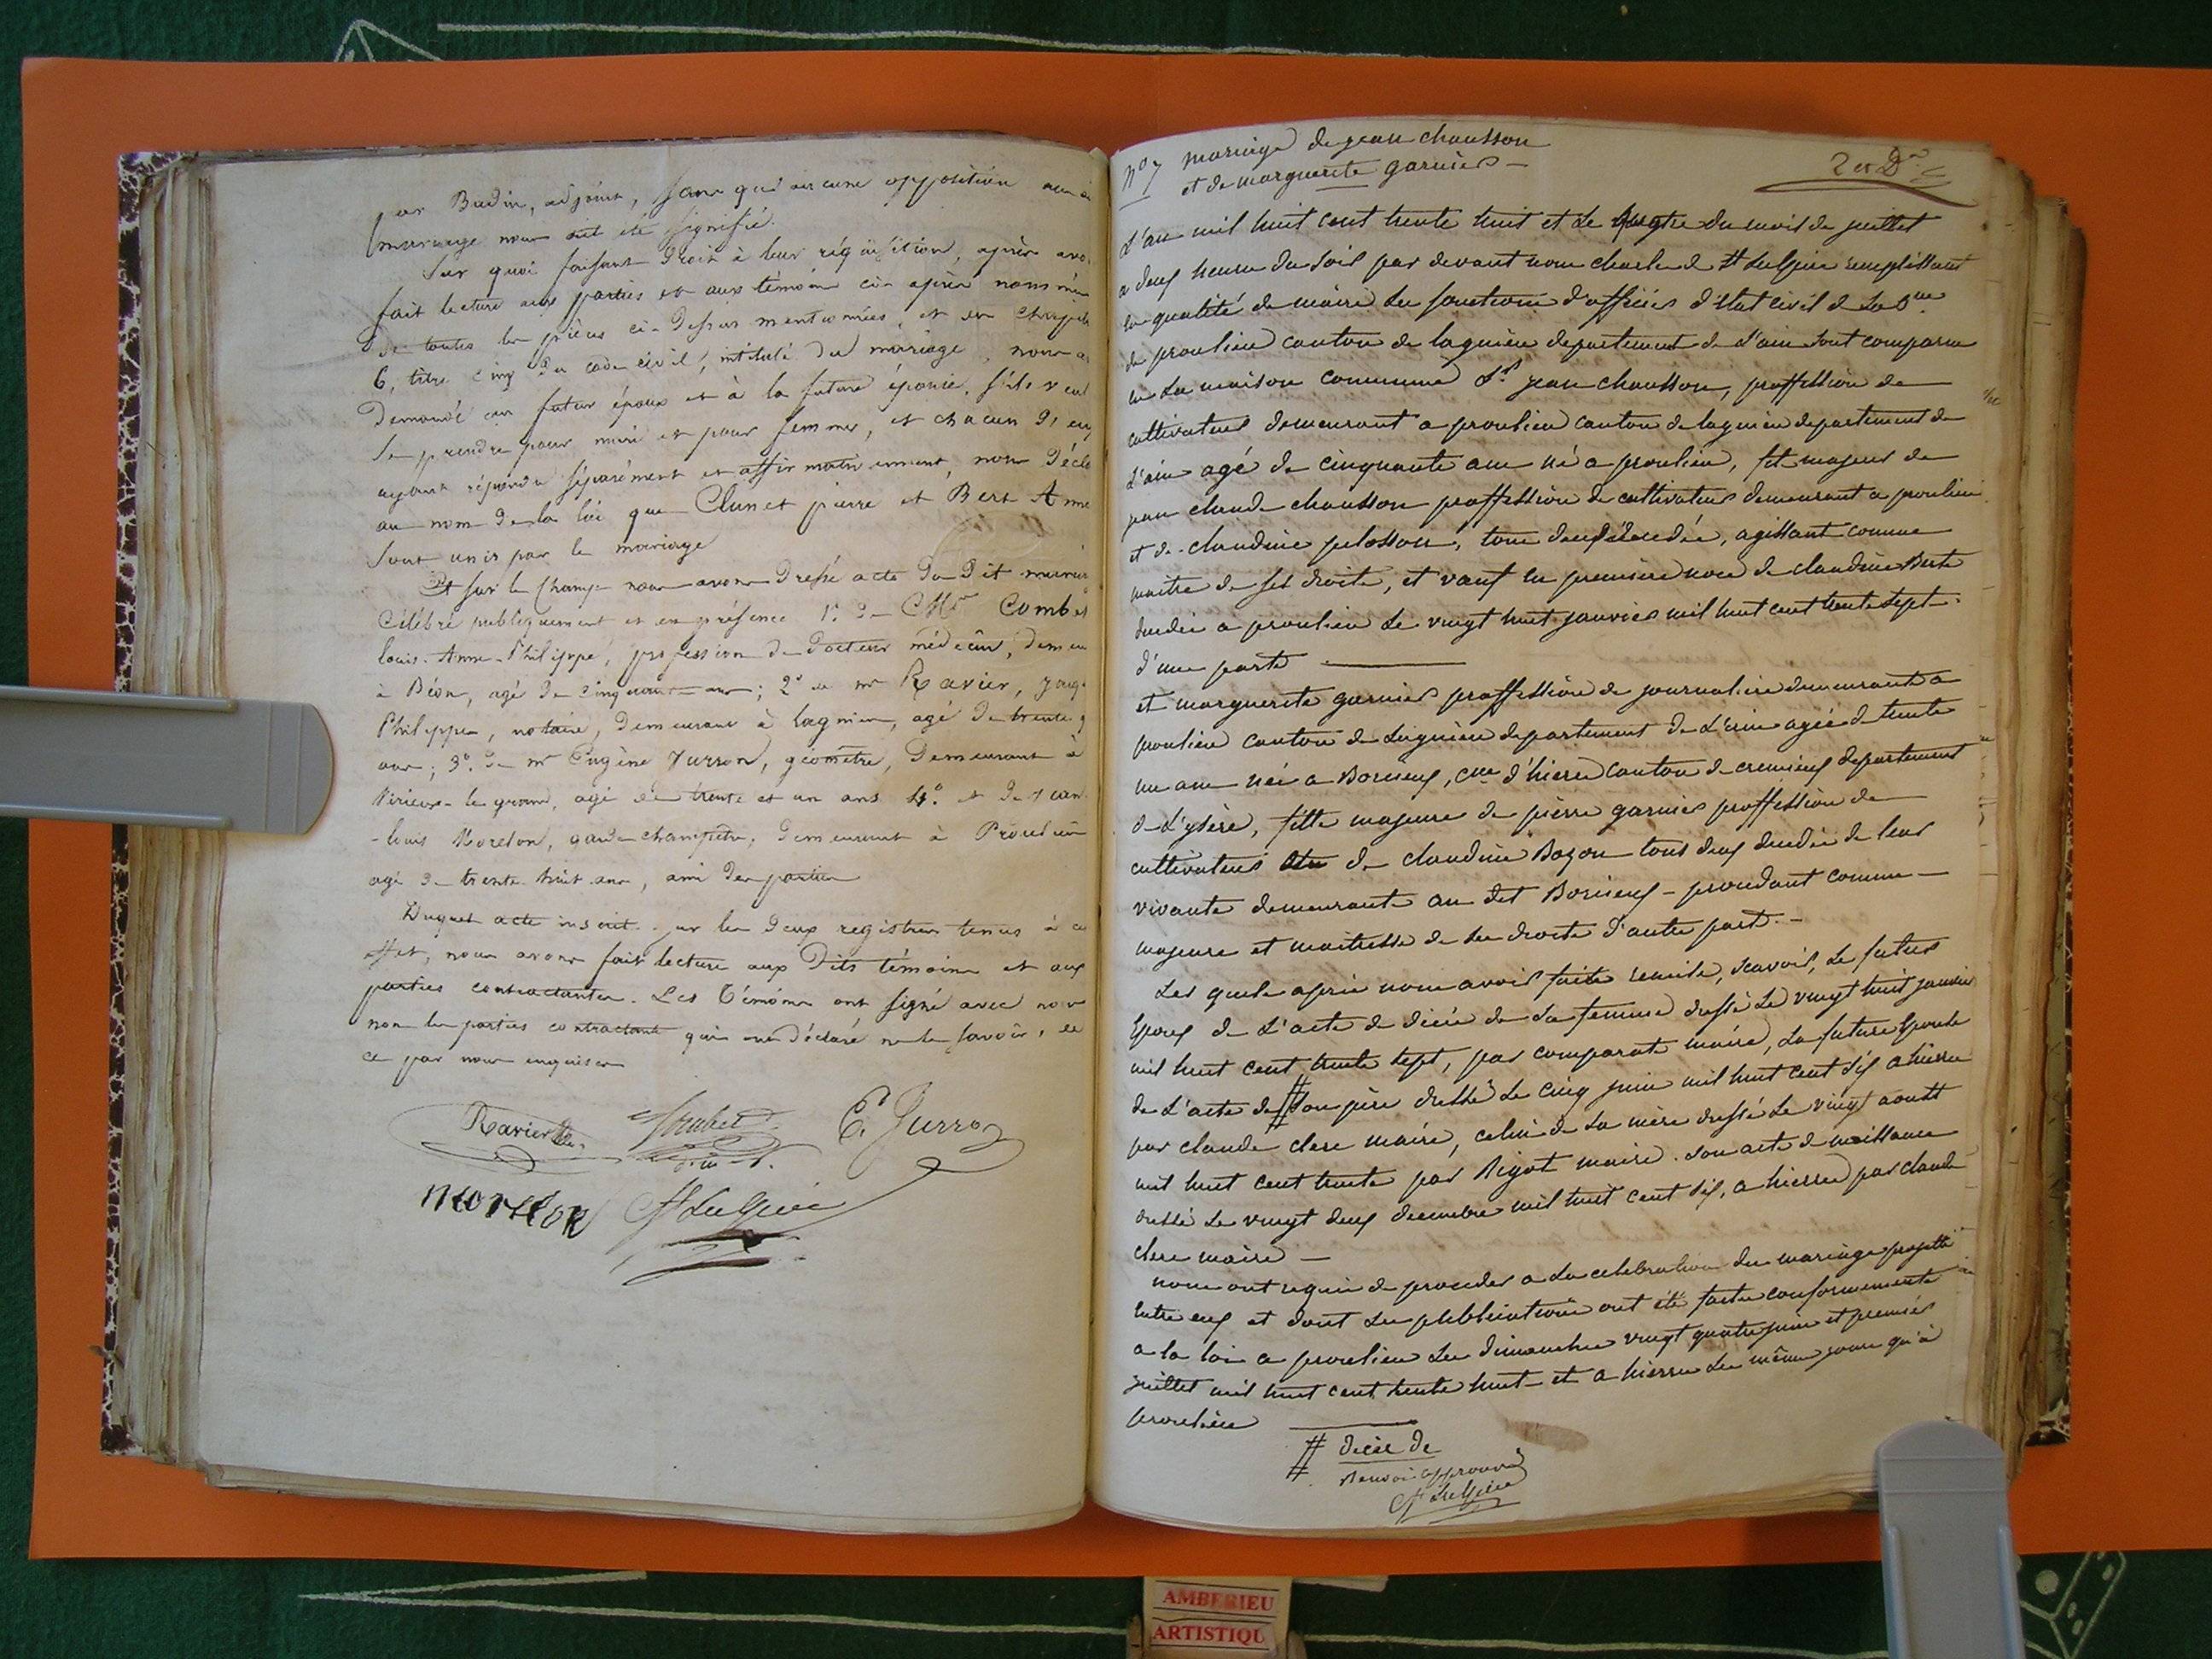 par Budin, adjoint, sans qu'aucune opposition au
mariage nous ait été signifié.
Sur quoi faisant droit à leur réquisition, après avo
fait lecture aux parties et aux témoins ci-après nommés
de toutes les pièces ci-dessus mentionnées, et du chapitre
6, titre cinq du code civil, intitulé du mariage, nous a
demandé au futur époux et à la future épouse, s'ils veul
se prendre pour mari et pour femme, et chacun d'eux
ayant répondu séparément et affirmativement, nous décla
au nom de la loi que Clunet pierre et Bert Anne
sont unis par le mariage
Et sur le champ nous avons dressé acte du dit mariage
Célébré publiquement et en présence 1.° de Mr Combet
louis-Anne-Philippe, profession de docteur médecin, demeu
à Béon, agé de cinquante ans; 2° de mr Ravier,
Philippe, notaire, demeurant à lagnieu, agé de trente
ans; 3°. de mr Eugène Jurron, géomètre, demeurant à
Virieu-le-grand, agé de trente et un ans 4.° et de jean
-louis Morelon, garde-champêtre, demeurant à Proulieu
agé de trente-huit ans, ami des parties
Duquel acte inscrit sur les deux registres tenus à cet
effet, nous avons fait lecture aux dits témoins et aux
parties contractantes. Les témoins ont signé avec nous
non les parties contractantes qui ont déclaré ne le savoir, de
ce par nous enquises
Ravier E. Jurron
morelon St Sulpice
N° 7 mariage de jean chausson
et de marguerite garnier -
2 et D.
L'an mil huit cent trente huit et le quatre du mois de juillet
a deux heures du soir par devant nous charles de St Sulpice remplissant
en qualité de maire les fonctions d'officier d'état civil de la cne
de proulieu canton de lagnieu departement de l'ain sont comparu
en la maison commune Sr. jean chausson, proffession de
cultivateur demeurant a proulieu canton de lagnieu departement de
l'ain agé de cinquante ans né a proulieu, fils majeur de
jean claude chausson proffession de cultivateur demeurant a proulieu
et de claudine pelosson, tous deux décedés, agissant comme
maitre de ses droits, et veuf en première noce de claudine Berte
decedée a proulieu le vingt huit janvier mil huit cent trente sept.
d'une parte
et marguerite garnier proffession de journaliere demeurante a
proulieu canton de Lagnieu departement de L'ain agée de trente
un ans née a Bourcieux, cne d'hierre canton de cremieux departement
de L'ysère, fille majeure de pierre garnier proffession de
cultivateur de claudine Bozon tous deux decedés de leur
vivante demeurante au dit Bourcieux - procedant comme -
majeure et maitresse de ses droits d'autre part. -
Les quels après nous avoir faite remise, scavoir, Le futur
Epoux de L'acte de décès de sa femme dressé Le vingt huit janvier
mil huit cent trente sept, par comparat maire, La future Epouse
de L'acte de # son père dressé Le cinq juin mil huit cent dix a hierre
par claude clere maire, celui de sa mère dressé Le vingt aoust
mil huit cent trente par Rigot maire. son acte de naissance
dressé Le vingt deux decembre mil huit cent six, a hierre par claude
clere maire -
nous ont requis de proceder a La celebration du mariage projetté
entre eux et dont Les publications ont été faites conformemente
a la loi a proulieu Les dimanches vingt quatre juin et premier
juillet mil huit cent trente huit - et a hierre Les même jours qu'à
proulieu
# décès de
Renvoi approuvé
St Sulpice
AMBERIEU
ARTISTIQU